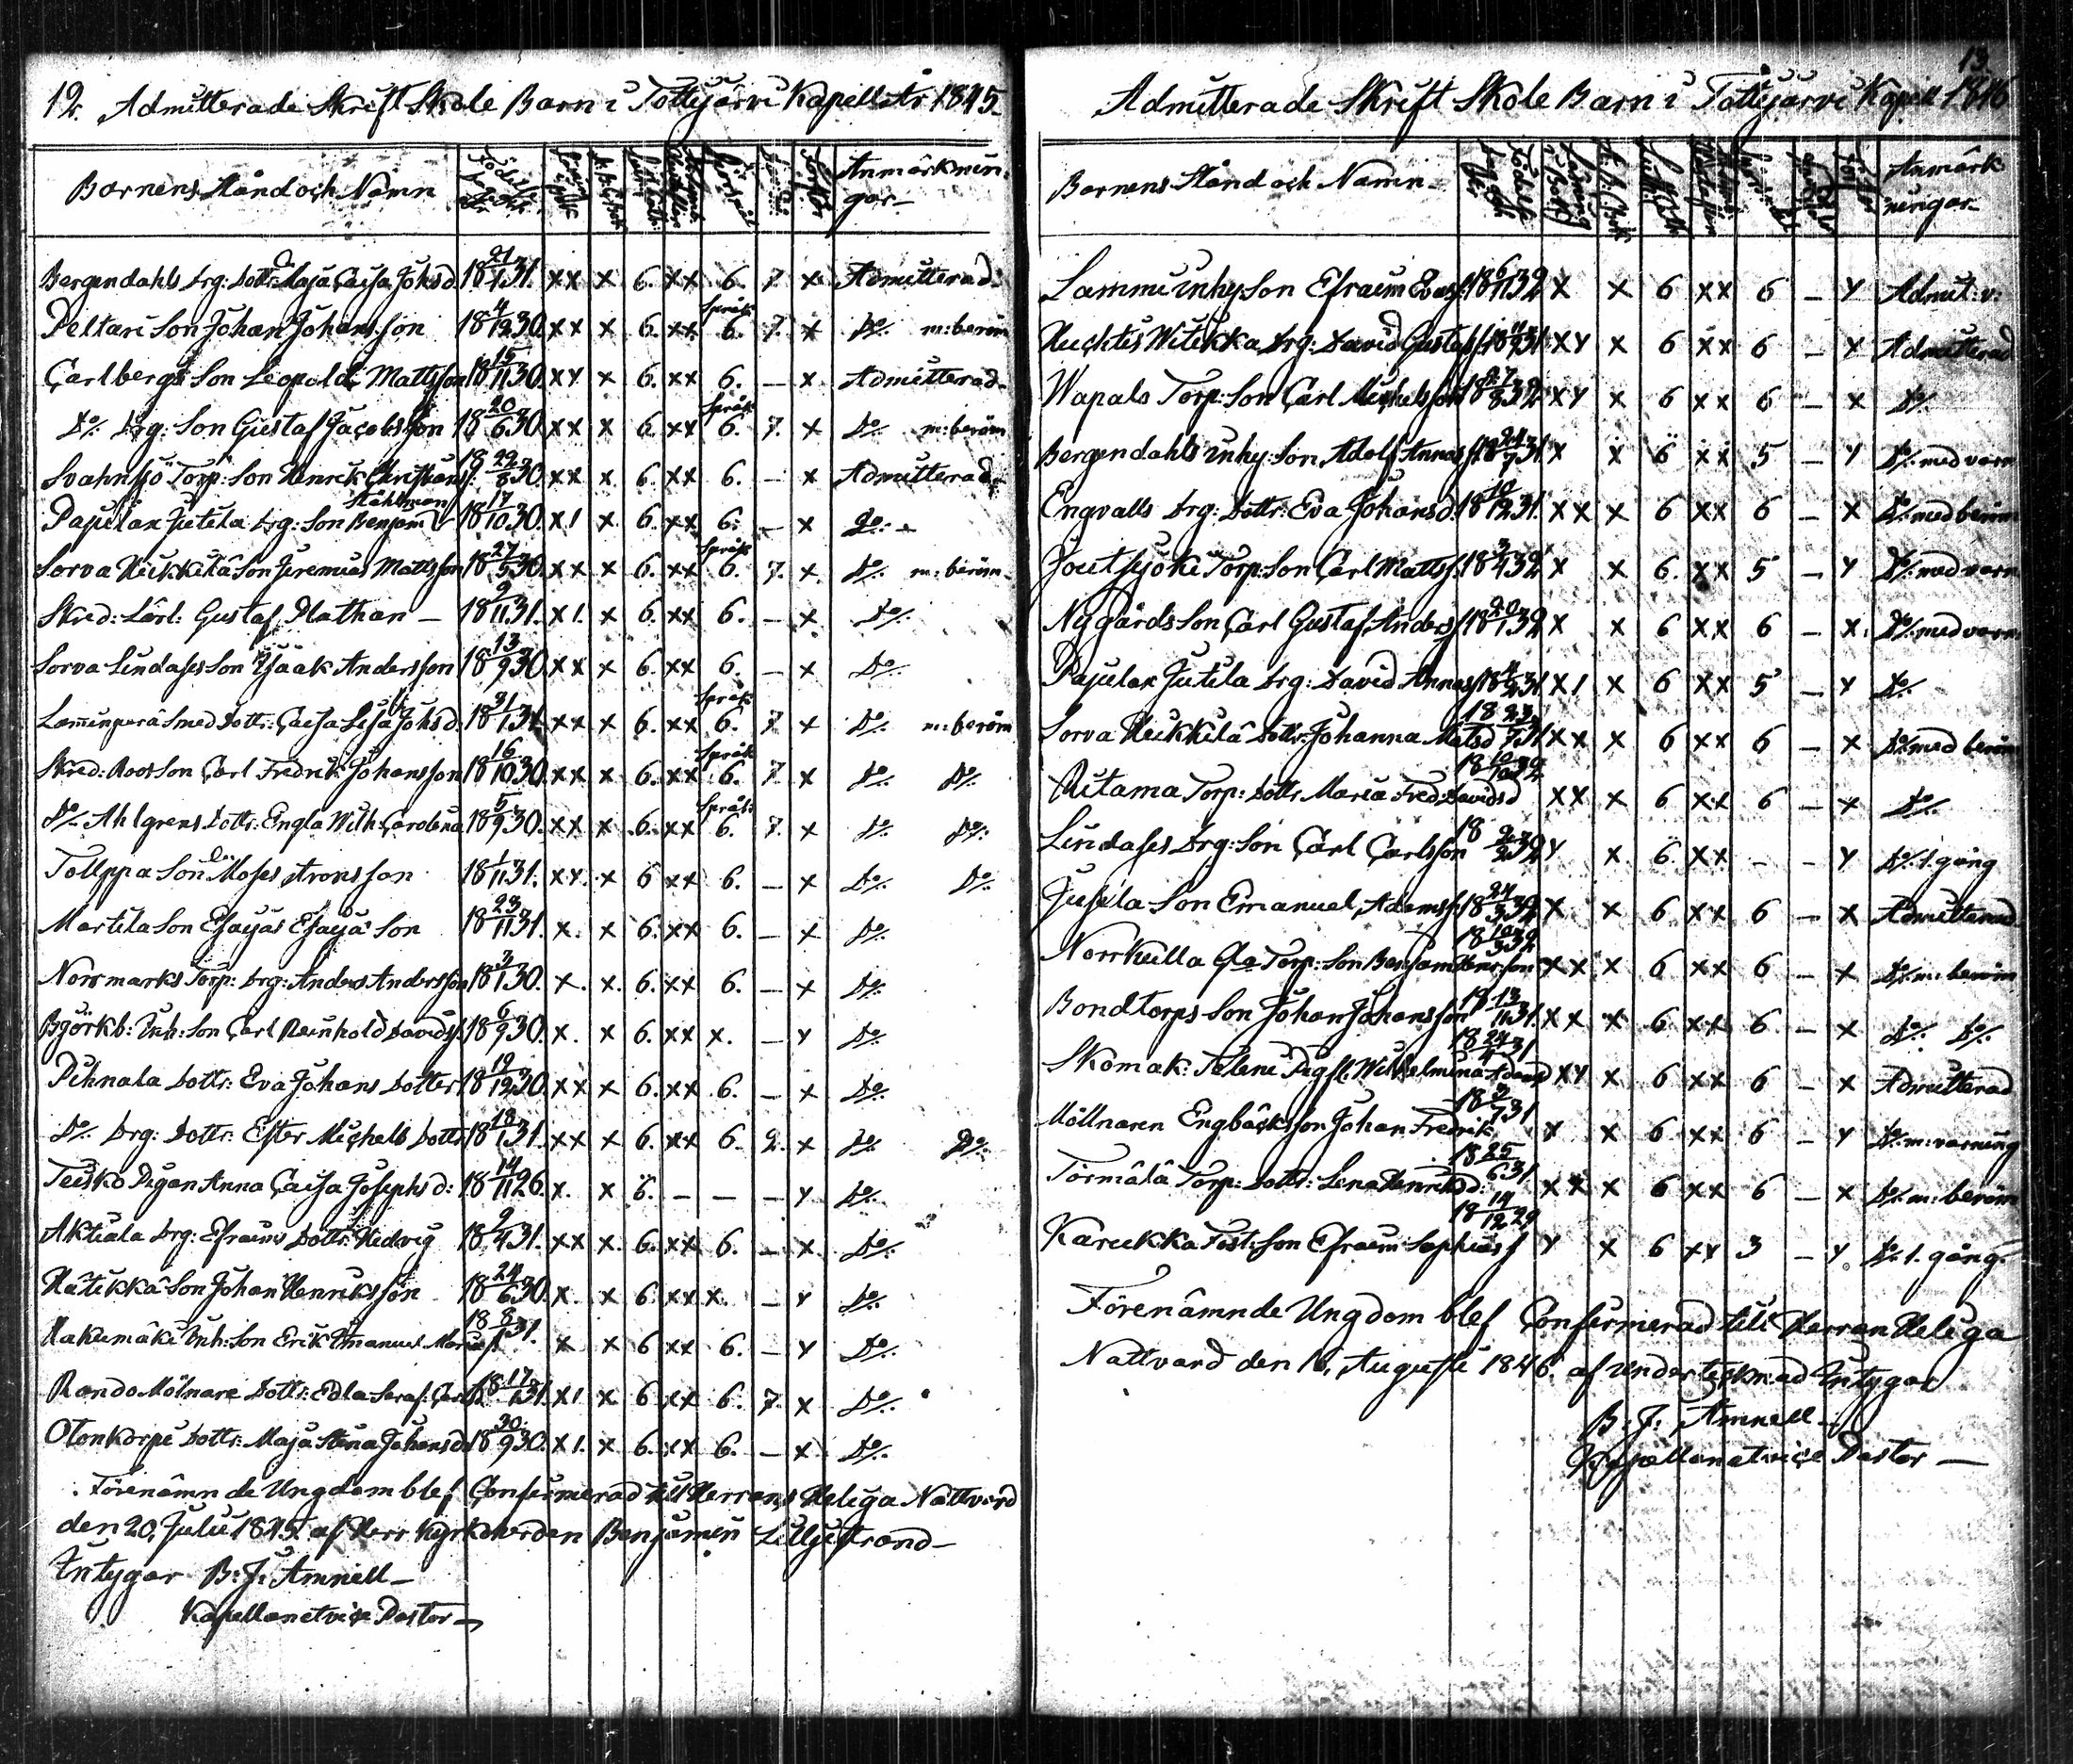 12. Admitterade Skrift Skole Barn i Tottijärvi Kapell År 1845.
Barnens Stånd och Namn Anmärkningar
Bergendahls drg: dottr: Maja Cajsa Johsd. 18 21/1 31. xx x 6. xx 6. 7. x Admitterad
Peltari Son Johan Johansson 18 4/12 30. xx x 6. xx Språk 6. 7. x Do m: beröm
Carlbergs Son Leopold Mattsson 18 15/11 30. xx x 6. xx 6. – x Admitterad
Do drg: Son Gustaf Jacobsson 18 20/6 30. xx x 6. xx Språk 6. 7. x Do m: beröm
Svahnsjö Torp: Son Henrik Christians. 18 22/8 30. xx x 6. xx 6. – x Admitterad
Pajulax Jutila drg: Son Benjam Ståhlman 18 17/10 30. x1 x 6. xx 6. – x Do
Sorva Heikkilä Son Jeremias Mattsson 18 27/5 30. xx x 6. xx Språk 6. 7. x Do m: beröm
Skred: Lärl: Gustaf Plathan – 18 9/11 31. x1. x 6. xx 6. – x Do
Sorva Lindases Son Isaak Andersson 18 13/9 30. xx x 6. xx 6. – x Do
Lammenperä Smed dottr: Cajsa Lisa Johs d. 18 31/1 31. xx x 6. xx Språk 6. 7. x Do m: beröm
Skred: Roos Son Carl Fredrik Johansson 18 16/10 30. xx x 6. xx Språk 6. 7. x Do Do
Do Ahlgrens dottr: Engla Wilh. Carolina 18 5/9 30. xx x 6. xx Språk 6. 7. x Do Do
Tollppa Son Moses Aronsson 18 1/11 31. xx. x 6 xx 6. – x Do Do
Martila Son Esaias Esaiæ Son 18 23/11 31. x. x 6. xx 6. – x Do
Norrmarks Torp: drg: Anders Andersson 18 3/1 30. x. x. 6. xx 6. – x Do
Björkb: Inh: Son Carl Reinhold Davids. 18 6/9 30. x. x 6. xx x. – x Do
Pihnala dottr: Eva Johans dotter 18 19/12 30. xx x 6. xx 6. – x Do
Do drg: dottr: Ester Michels dottr 18 18/1 31. xx x 6. xx 6. 2. x Do Do
Teisko Pigan Anna Cajsa Josephs d: 18 14/11 26. x. x 6. – – – x Do
Aktiala drg: Efraims dottr: Hedvig 18 9/4 31. xx x. 6. xx 6. – x. Do
Hätikkä Son Johan Henriksson 18 24/6 30. x. x 6 xx x. – x Do
Hakumäki Inh: Son Erik Emanuel Mariæs. 18 8/1 31. x x 6 xx 6. – x Do
Rando Mölnare dottr: Edla Seraf: Carlsd. 18 17/1 31. x1 x 6 xx 6. 7. x Do
Otonkorpi dottr: Maja Stina Johansd. 18 30/9 30. x1. x 6. xx 6. – x. Do
Förenämnde Ungdom blef Confirmerad till Herrans Heliga Nattvard
den 20 Julii 1845. af Herr Kyrkoherden Benjamin Lilljestrand –
Intygar B: J: Amnell –
Kapellan et vice Pastor –
13.
Admitterade Skrift Skole Barn i Tottijärvi Kapell 1846
Barnens Stånd och Namn – Anmärkningar –
Lammi inhy Son Efraim Evas. 18 6/11 32 x x 6 xx 6 – x Admit: v:
Huchtis Witikka drg: David Gustafs. 18 11/9 31. xx x 6 xx 6 – x Admitterad
Wapalo Torp: Son Carl Michelsson 18 27/8 32 xx x 6 xx 6 – x Do
Bergendahls inhy: Son Adolf Annas. 18 24/7 31 x x 6 xx 5 – x Do med varn
Engvalls drg: dottr: Eva Johansd. 18 10/12 31. xx x 6 xx 6 – x Do med beröm
Joutsijoki Torp: Son Carl Mattss. 18 3/4 32 x x 6. xx 5 – x Do med varn
Nygårds Son Carl Gustaf Anders. 18 20/1 32 x x 6 xx 6 – x. Do med varn
Pajulax Jutila drg: David Annas. 18 4/2 31 x1 x 6 xx 5 – x Do
Sorva Heikkilä dottr: Johanna Matsd 18 23/7 31 xx x 6 xx 6 – x Do med beröm
Ritama Torp: dottr Maria Fred: Davidsd 18 10/10 32 xx x 6 xx 6 – x Do
Lindases drg: Son Carl Carlsson 18 2/2 32 x x. 6. xx – – x Do 1. gång
Jusila Son Emanuel Adamss. 18 24/3 32 x x 6 xx 6 – x Admitterad
Norrkulla Qla Torp: Son Benjam Henrsson 18 10/3 32 xx x 6 xx 6 – x Do m: beröm
Bondtorps Son Johan Johansson 18 13/11 31. xx x 6 xx 6 – x Do Do
Skomak: Seleni Pigfl. Wilhelmina Adamsd 18 24/4 31 xx x 6 xx 6 – x Admitterad
Möllnaren Engbäcks Son Johan Fredrik 18 2/7 31 x x 6 xx 6 – x Do m: varning
Törmälä Torp: dottr: Lena Henriksd: 18 25/6 31 xx x 6 xx 6 – x Do m: beröm
Karukka Fost: Son Efraim Sophias. 18 14/12 29 x x 6 xx 3 – x Do 1. gång.
Förenämnde Ungdom blef Confirmerad till Herran Heliga
Nattvard den 16, Augusti 1846. af undertecknad Intygar
B: J: Amnell –
Kapellan et vice Pastor –